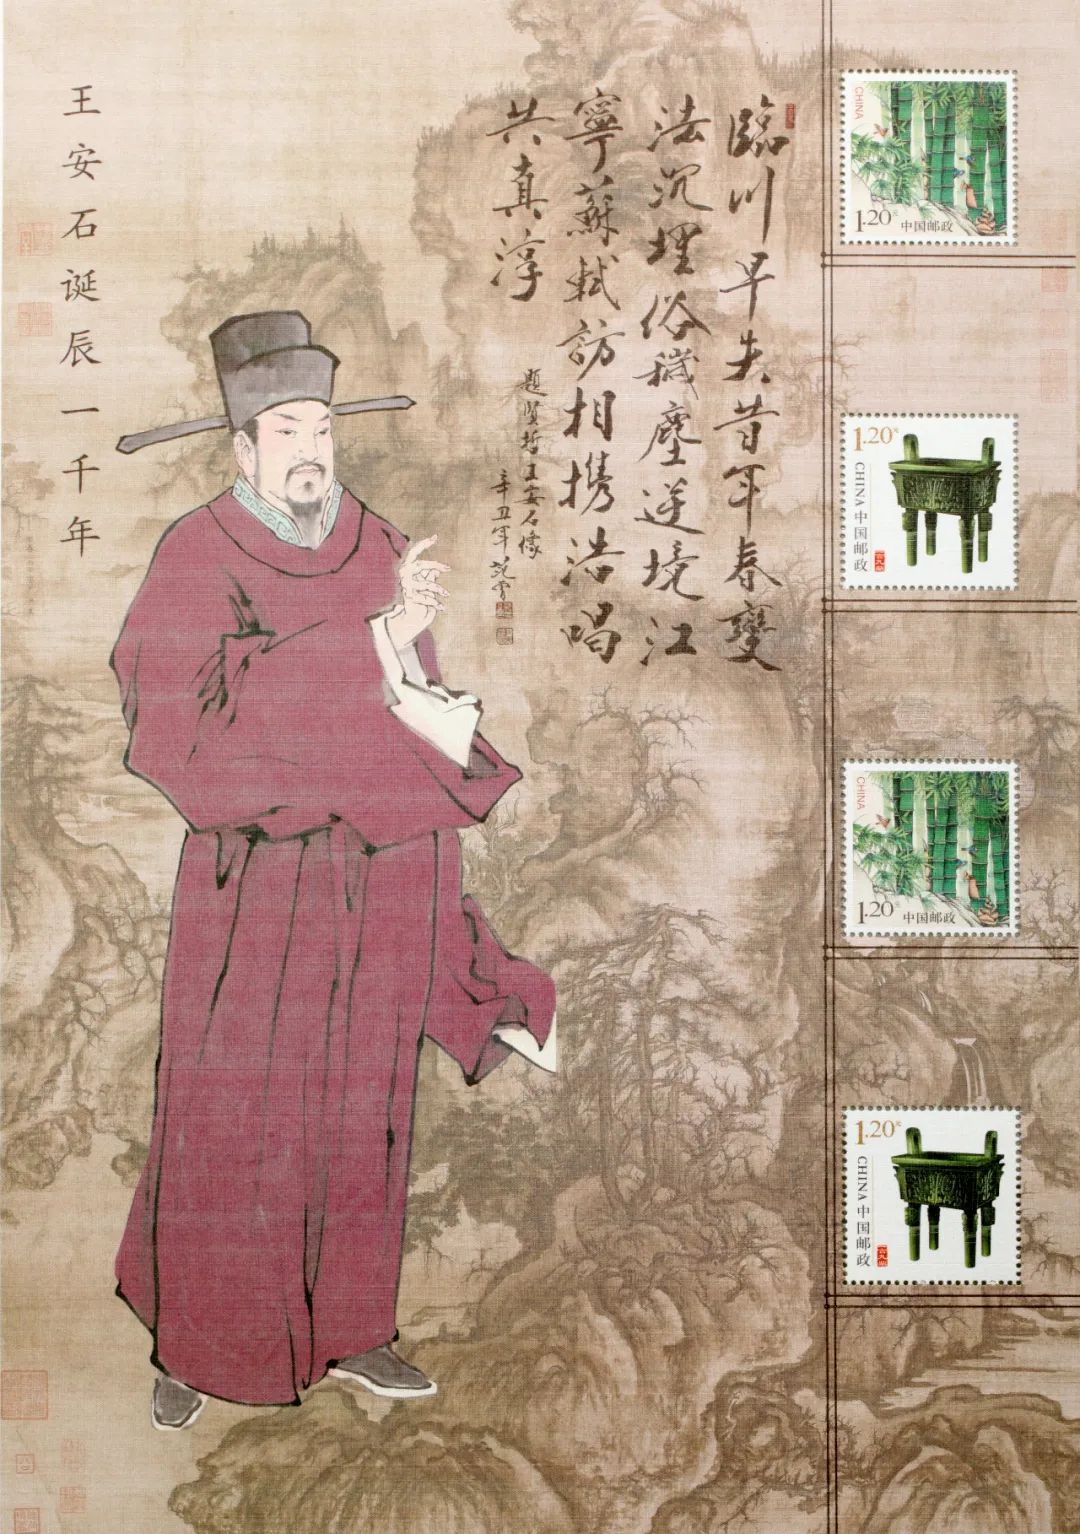 王安石诞辰一千年
臨川早失昔年春變
法沉埋俗穢塵逆境江
寧蘇軾訪相攜浩唱
共真淳
題賢哲王安石像
辛丑年范曾
CHINA
1.20元 中国邮政
1.20元
CHINA 中国邮政
CHINA
1.20元 中国邮政
1.20元
CHINA 中国邮政